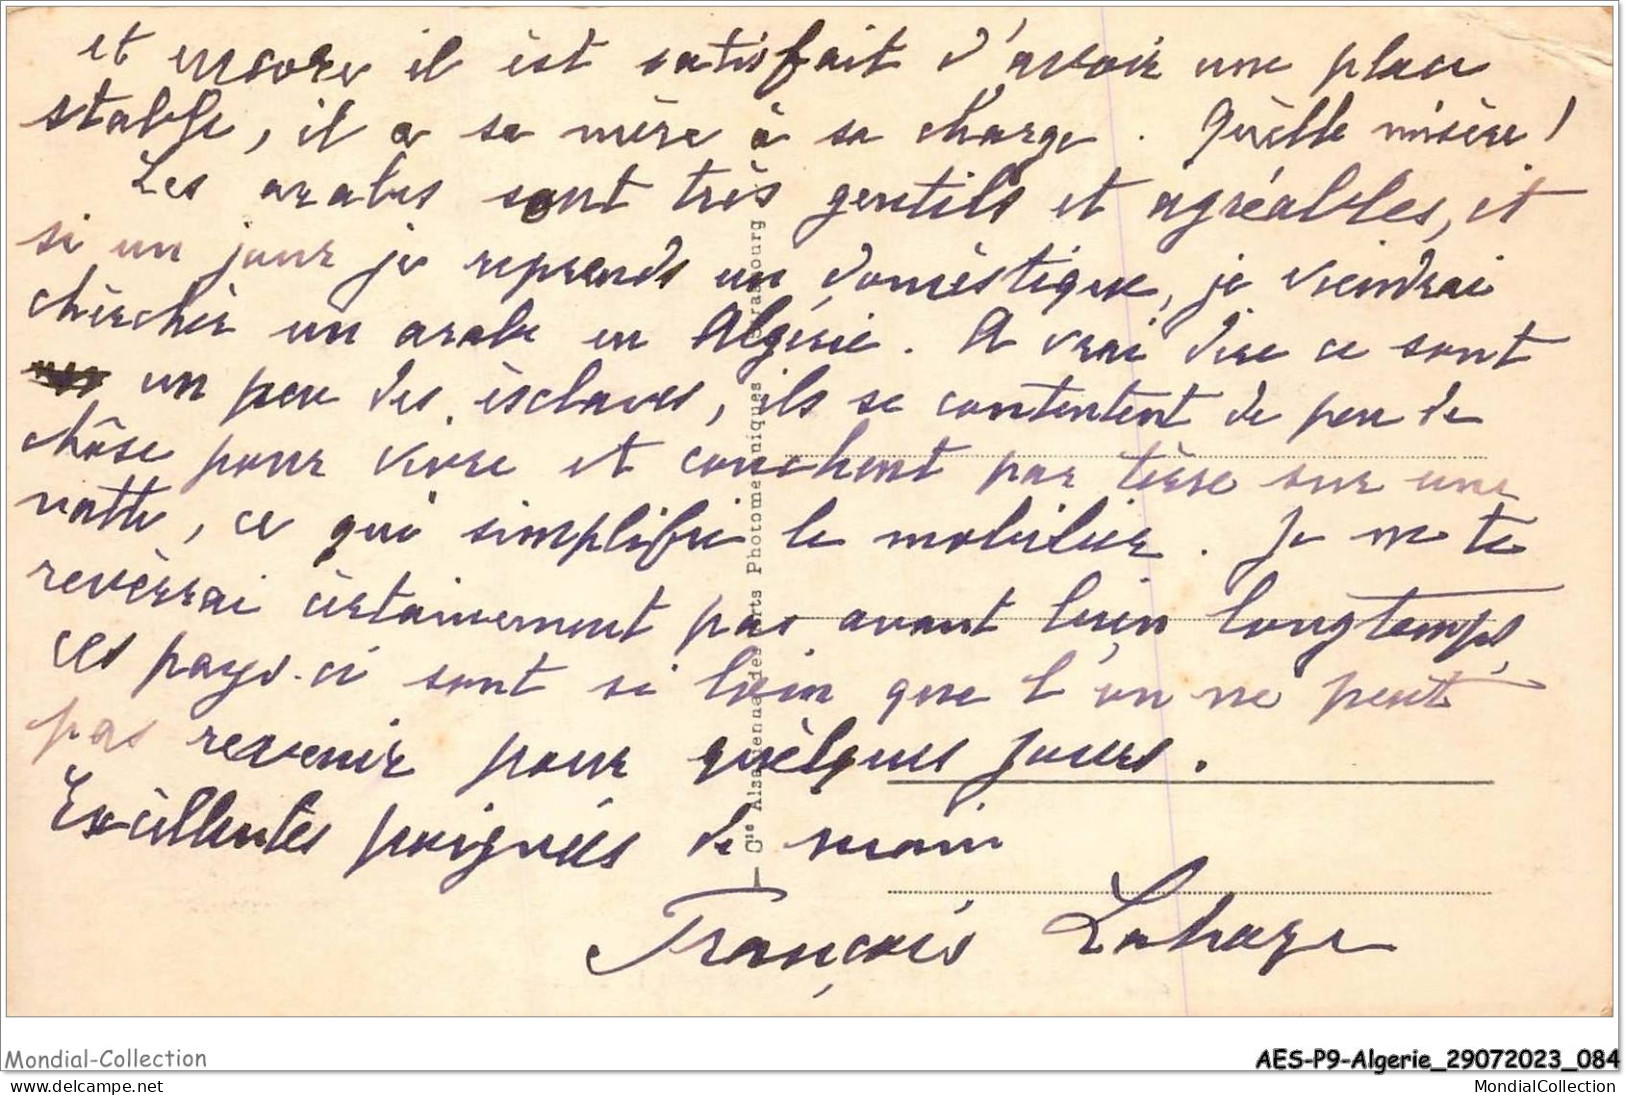 et encore il èst satisfait d'avoir une place
stable, il a sa mère à sa charge. Quèlle misère !
Les arabes sont très gentils et agréables, et
si un jour je reprends un domèstique, je viendrai
chèrchèr un arabe en Algérie. A vrai dire ce sont
un peu des èsclaves, ils se contentent de peu de
chôse pour vivre et couchent par tèrre sur une
natte, ce qui simplifie le mobilier. Je ne te
revèrrai cèrtainement pas avant bien longtemps,
ces pays-ci sont si loin que l'on ne peut
pas revenir pour quèlques jours.
Excèllentes poignées de main
François
Cie Alsacienne des Arts Photomécaniques Strasbourg
Mondial-Collection
AES-P9-Algerie_29072023_084
www.delcampe.net
MondialCollection